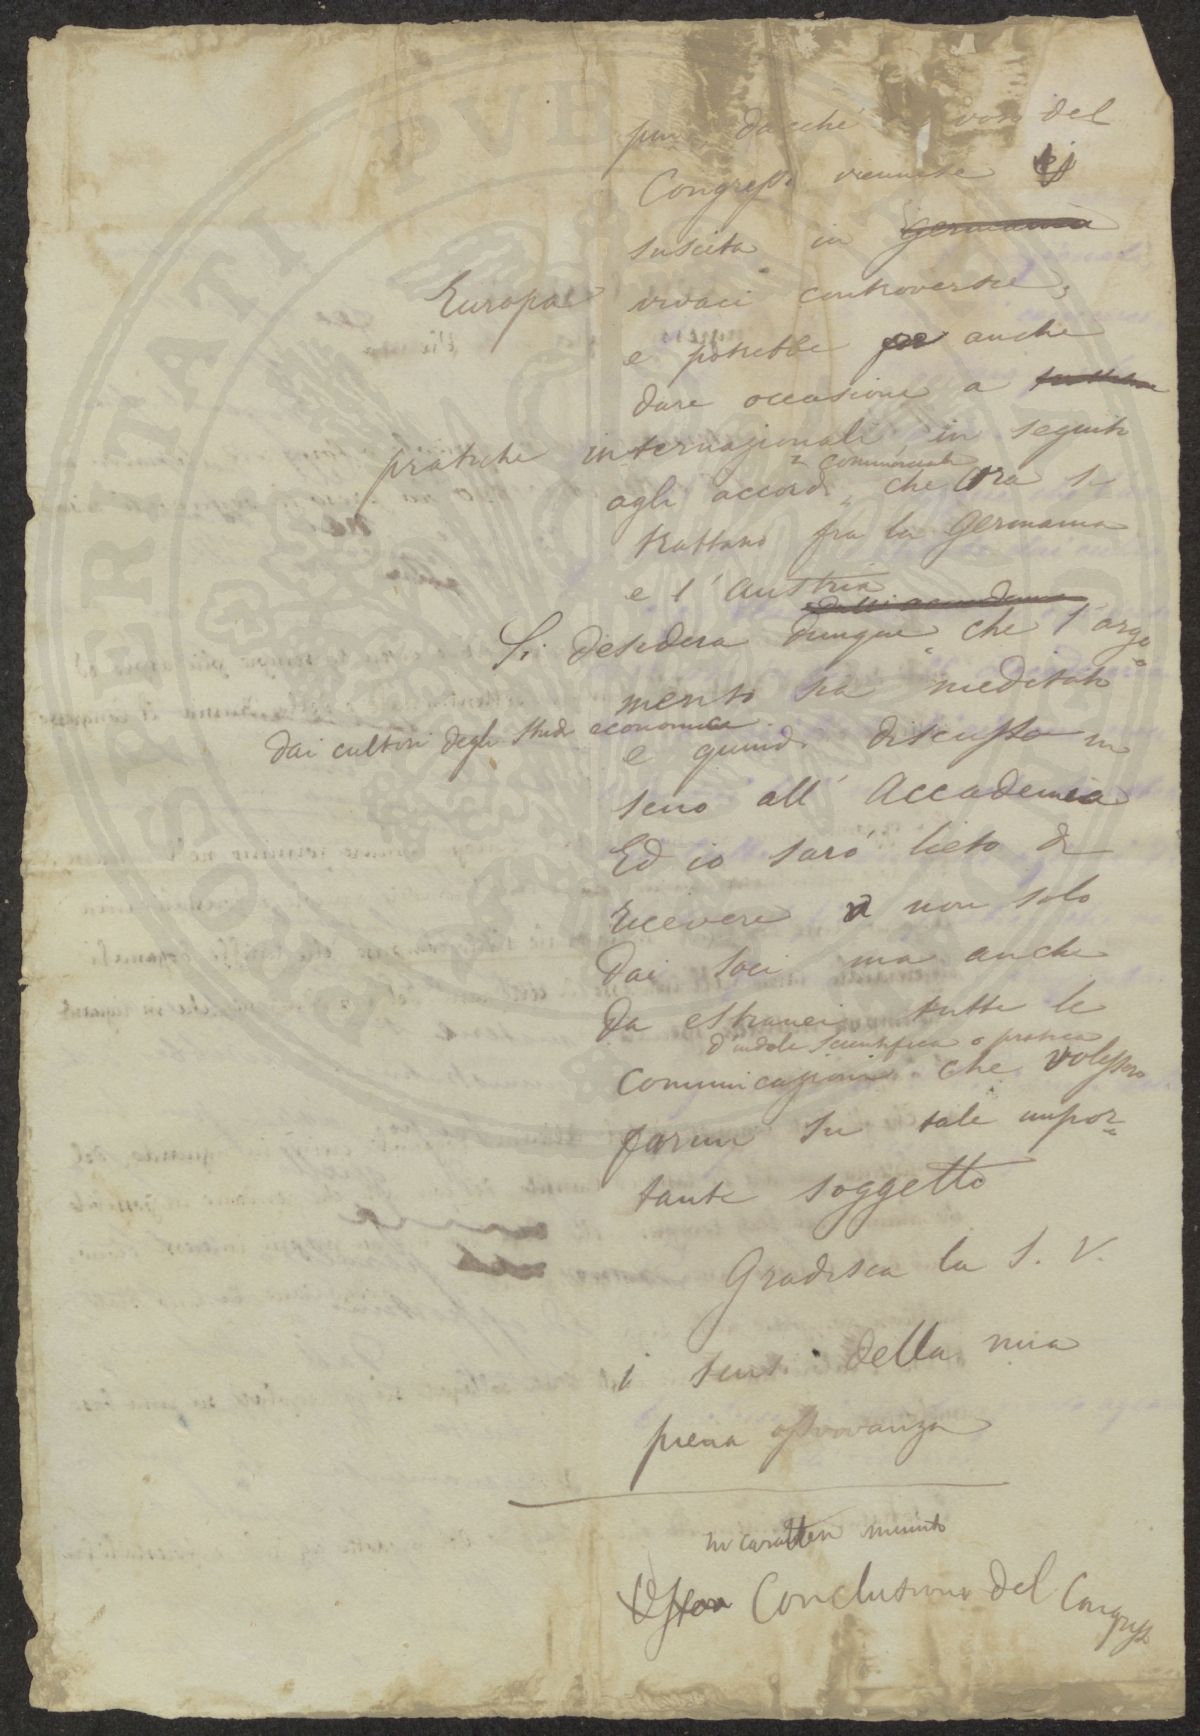 pure dacché i voti del
Congresso viennese
suscita in Germania
Europa vivaci controversie,
e potrebbe per anche
dare occasione a trattative
pratiche internazionali in seguito
commerciali
agli accordi, che ora si
trattano fra la Germania
e l'Austria
dall'accademia
Si desidera dunque che l'argo=
mento sia meditato
dai cultori degli studi economici
e quindi discusso in
seno all'Accademia
Ed io sarò lieto di
ricevere non solo
dai soci ma anche
da estranei tutte le
d'indole scientifica o pratica
comunicazioni che volessero
farmi su tale impor=
tante soggetto
Gradisca la S. V.
i sensi della mia
piena osservanza
in caratteri minuto
Conclusioni del Congresso